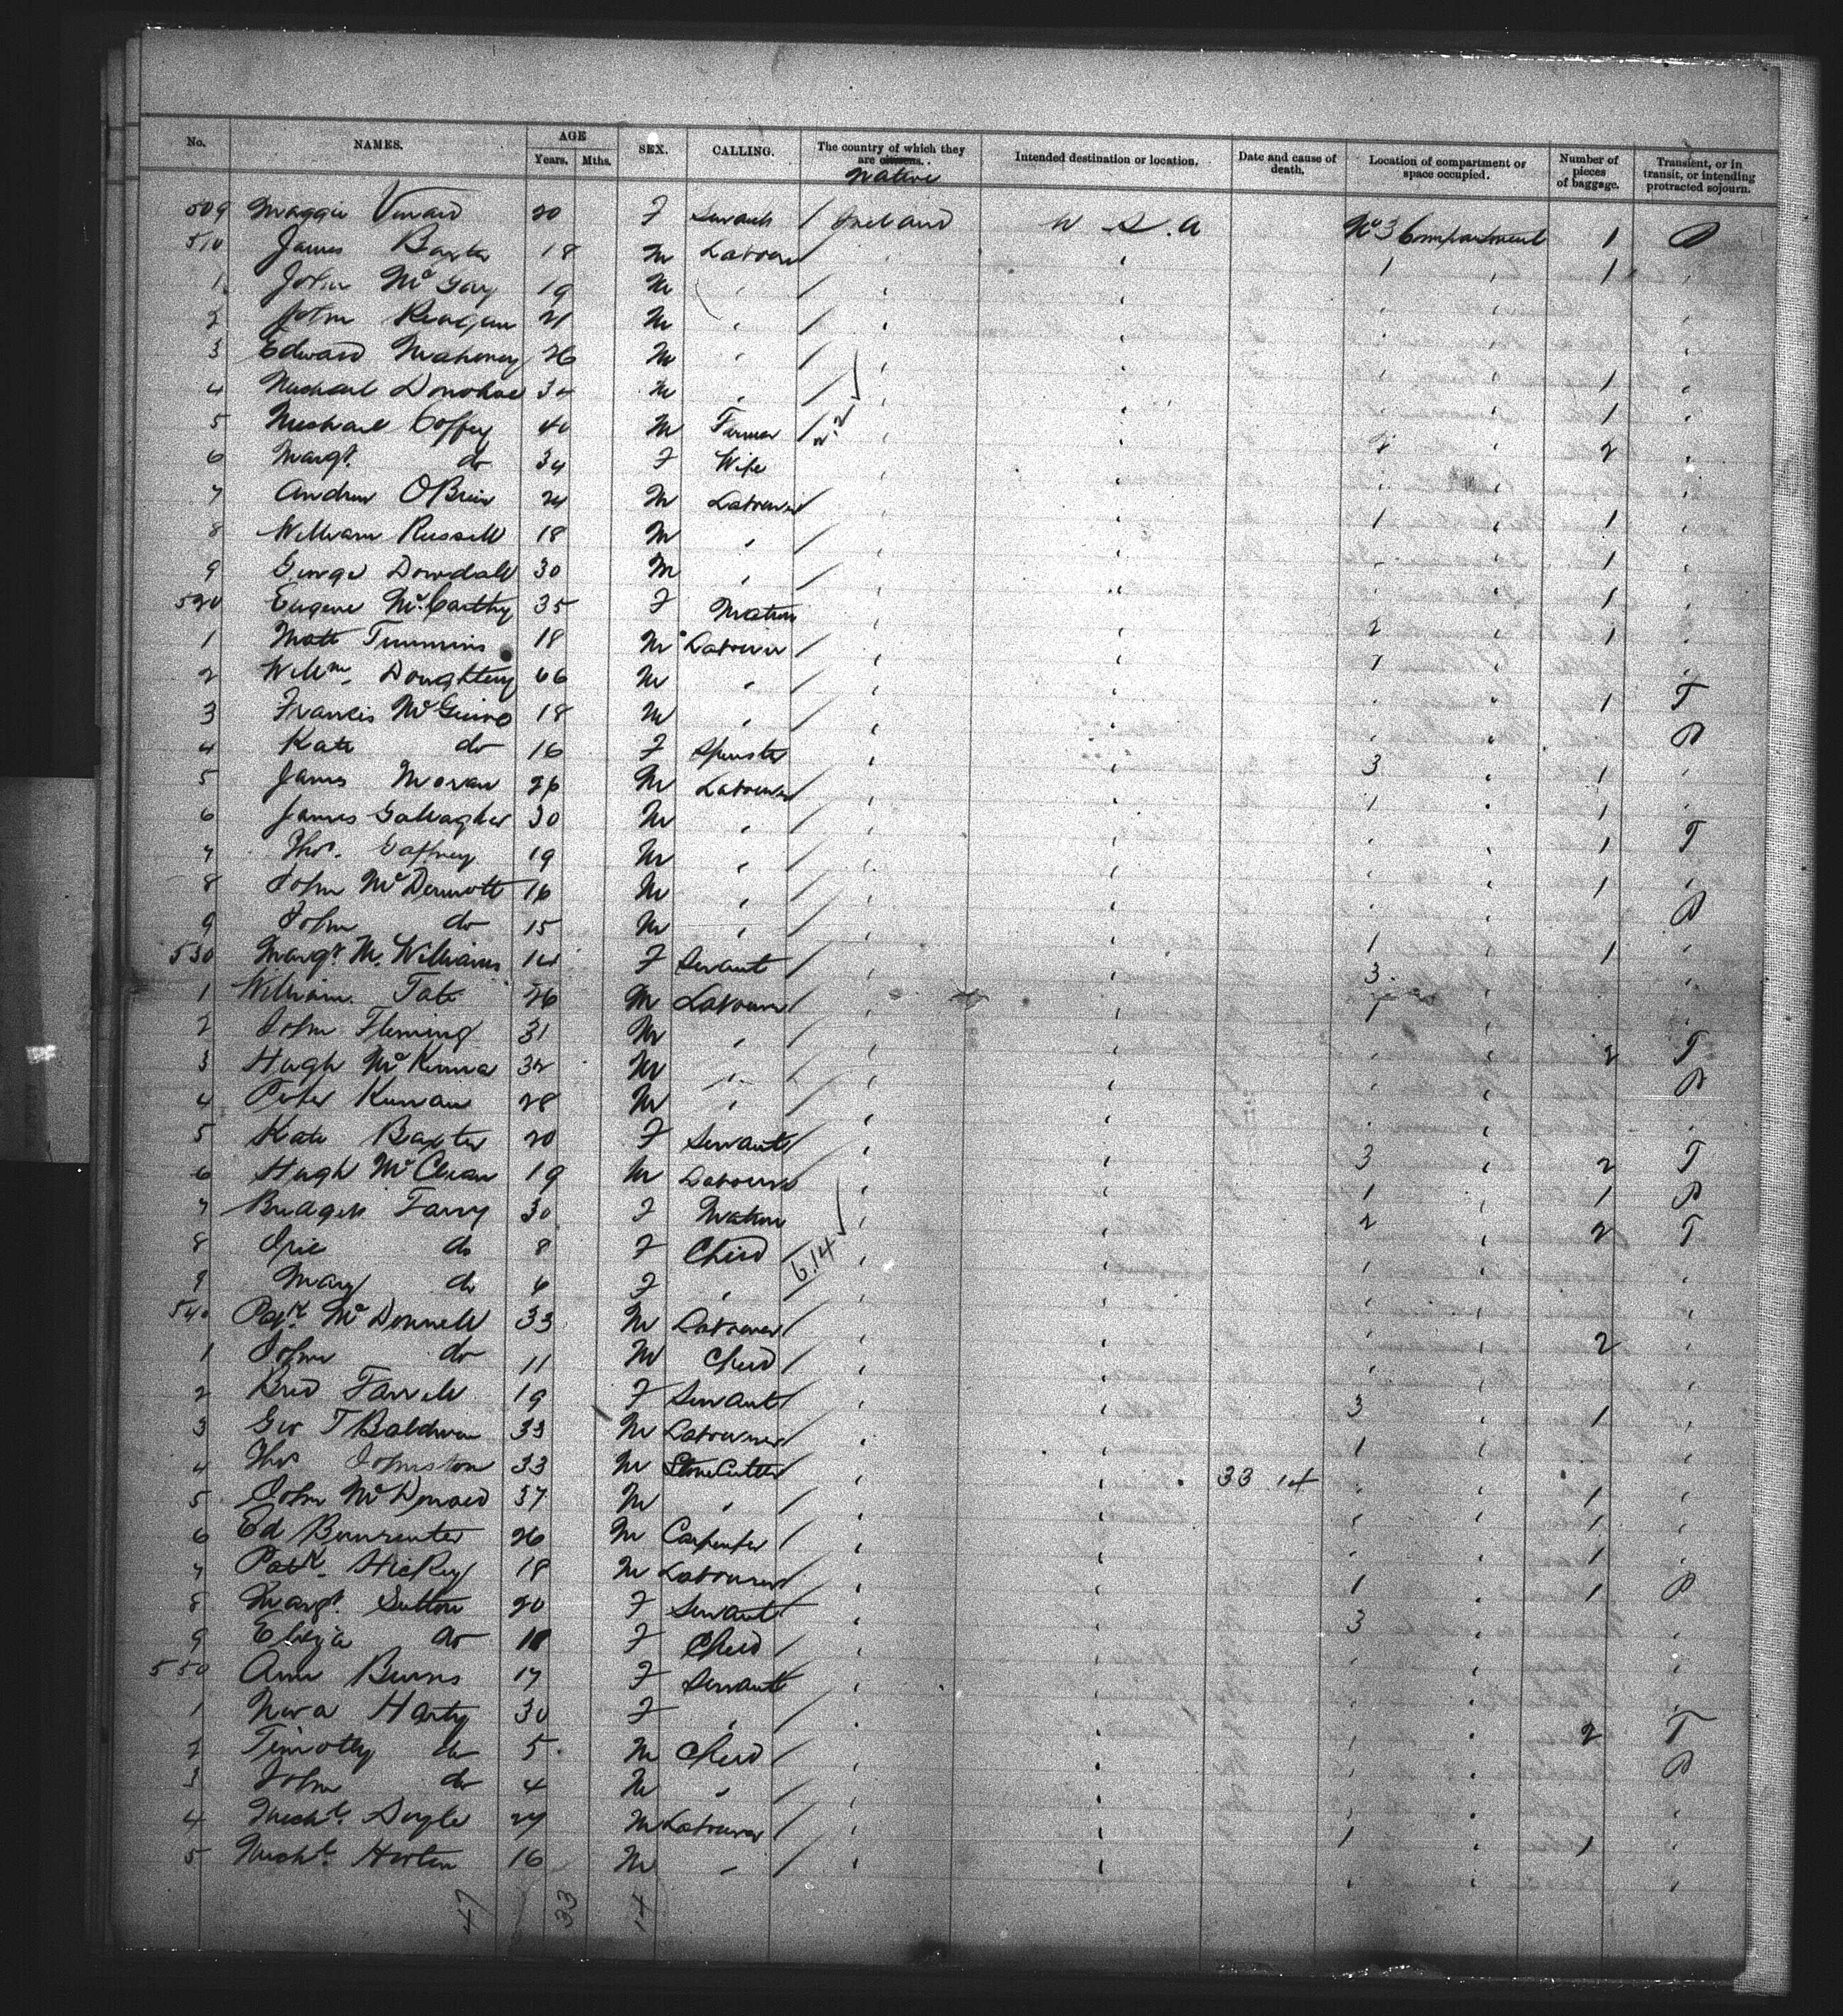 No. NAMES. AGE Years. Mths. SEX. CALLING. The country of which they are citizens. Native Intended destination or location. Date and cause of death. Location of compartment or space occupied. Number of pieces of baggage. Transient, or in transit, or intending protracted sojourn.
509 Maggie 20 F Servant / Ireland U S. A No 3 Compartment 1 P
510 James Baxter 18 M Labourer 1 1
1 John McGoy 19 M " /
2 John Reagan 21 M " /
3 Edward Mahoney 26 M " /
4 Michael Donohoe 34 M " / 1
5 Michael Coffey 40 M Farmer / 2.2 1
6 Margt. do 34 F Wife 2 2
7 Andrew OBrien 24 M Labourer /
8 William Russell 18 M " / 1 1
9 George Dowdall 30 M " / 1
520 Eugene McCarthy 35 F Matron 1
1 Matt Timmins 18 M Labourer / 2 1
2 Willm. Doughterty 66 M " / 1
3 Francis McGuire 18 M " / 1 T
4 Kate do 16 F Spinster P
5 James Moran 26 M Labourer / 3 1
6 James Gallagher 30 M " / 1 1
7 Thos. Gaffney 19 M " / 1 T
8 John McDermott 16 M " / 1
9 John do 15 M " / P
530 Margt. McWilliams 14 F Servant / 1 1
1 William Tate 26 M Labourer / 3
2 John Fleming 31 M " / 1
3 Hugh McKenna 32 M " / 2 T
4 Peter Kurran 28 M " / P
5 Kate Baxter 20 F Servant /
6 Hugh McClean 19 M Labourer 3 2 T
7 Bridget Farry 30 F Matron 1 1 P
8 do 8 F Child / 6.14 2 2 T
9 Mary do 6 F " / 1
540 Patk. McDonnell 33 M Labourer /
1 John do 11 M Child / 2
2 Brid Farrell 19 F Servant /
3 Geo T Baldwin 33 M Labourer / 3 1
4 Thos Johnston 33 M StoneCutter 33 14 1
5 John McDonald 37 M " / 1
6 Ed 26 M Carpenter / 1
7 Patk. Hickey 18 M Labourer / 1
8 Margt. Sutton 20 F Servant / 1 1 P
9 Eliza do F Child / 3
550 Ann Burns 17 F Servant
1 Nora Harty 30 F " /
2 Timothy do 5 M Child / 2 T
3 John do 4 M " / P
4 Michl. 27 M Labourer /
5 Michl. 16 M " / 1 1
47 33 14